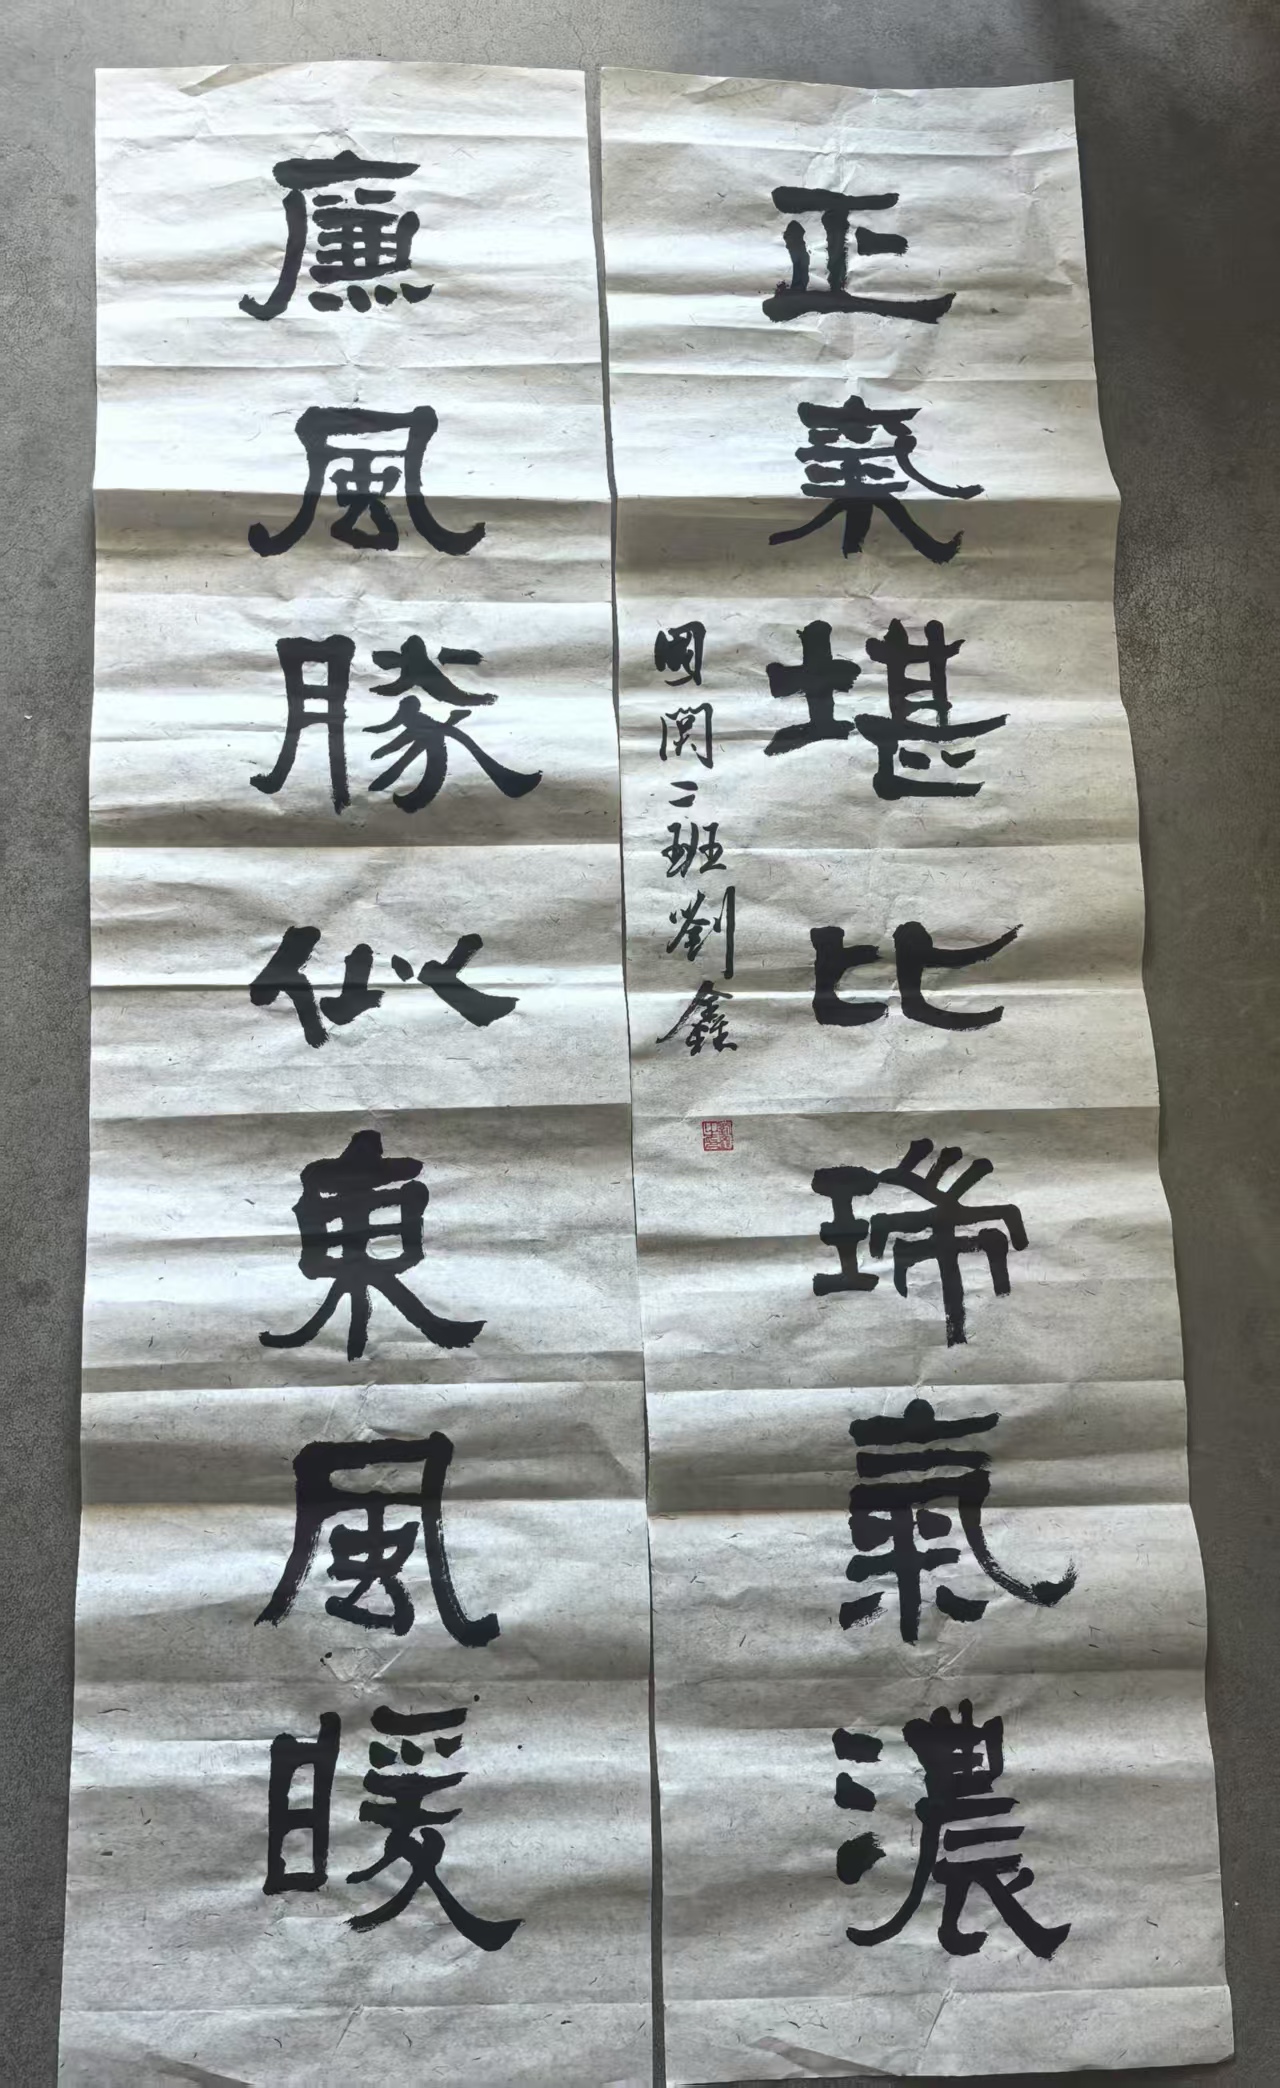 廉風勝似東風暖
正氣堪比瑞氣濃
國関二班劉鑫